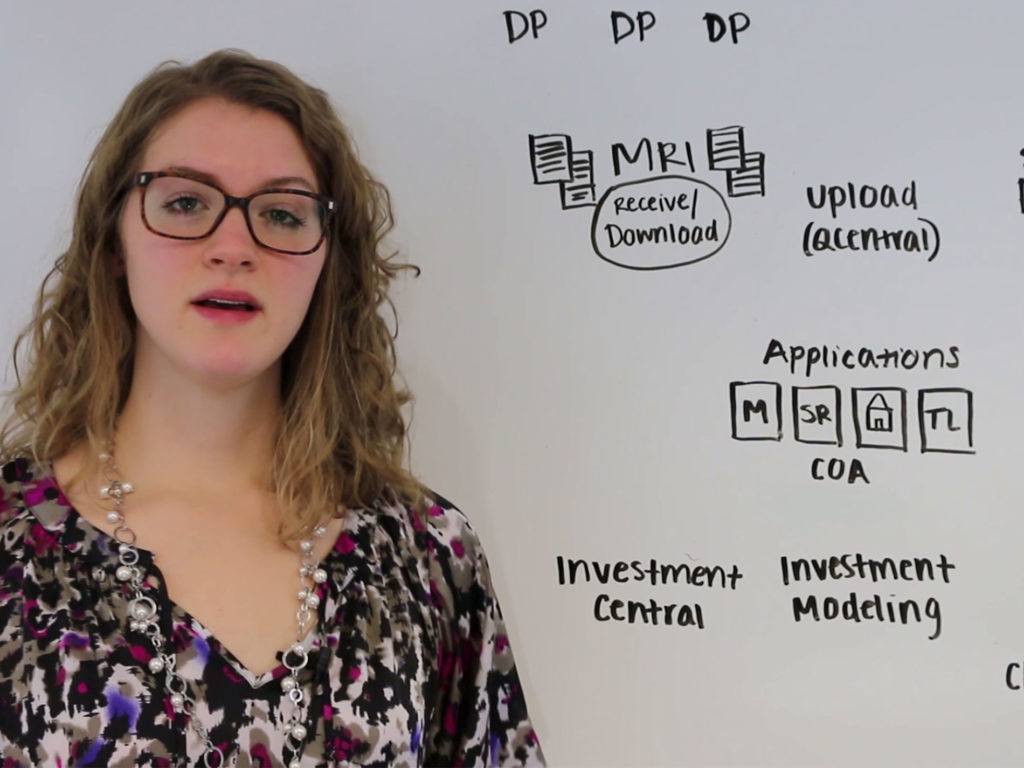 DP DP DP
MRI
Receive/
Download
Upload
(QCentral)
Applications
M SR TL
COA
Investment
Central
Investment
Modeling